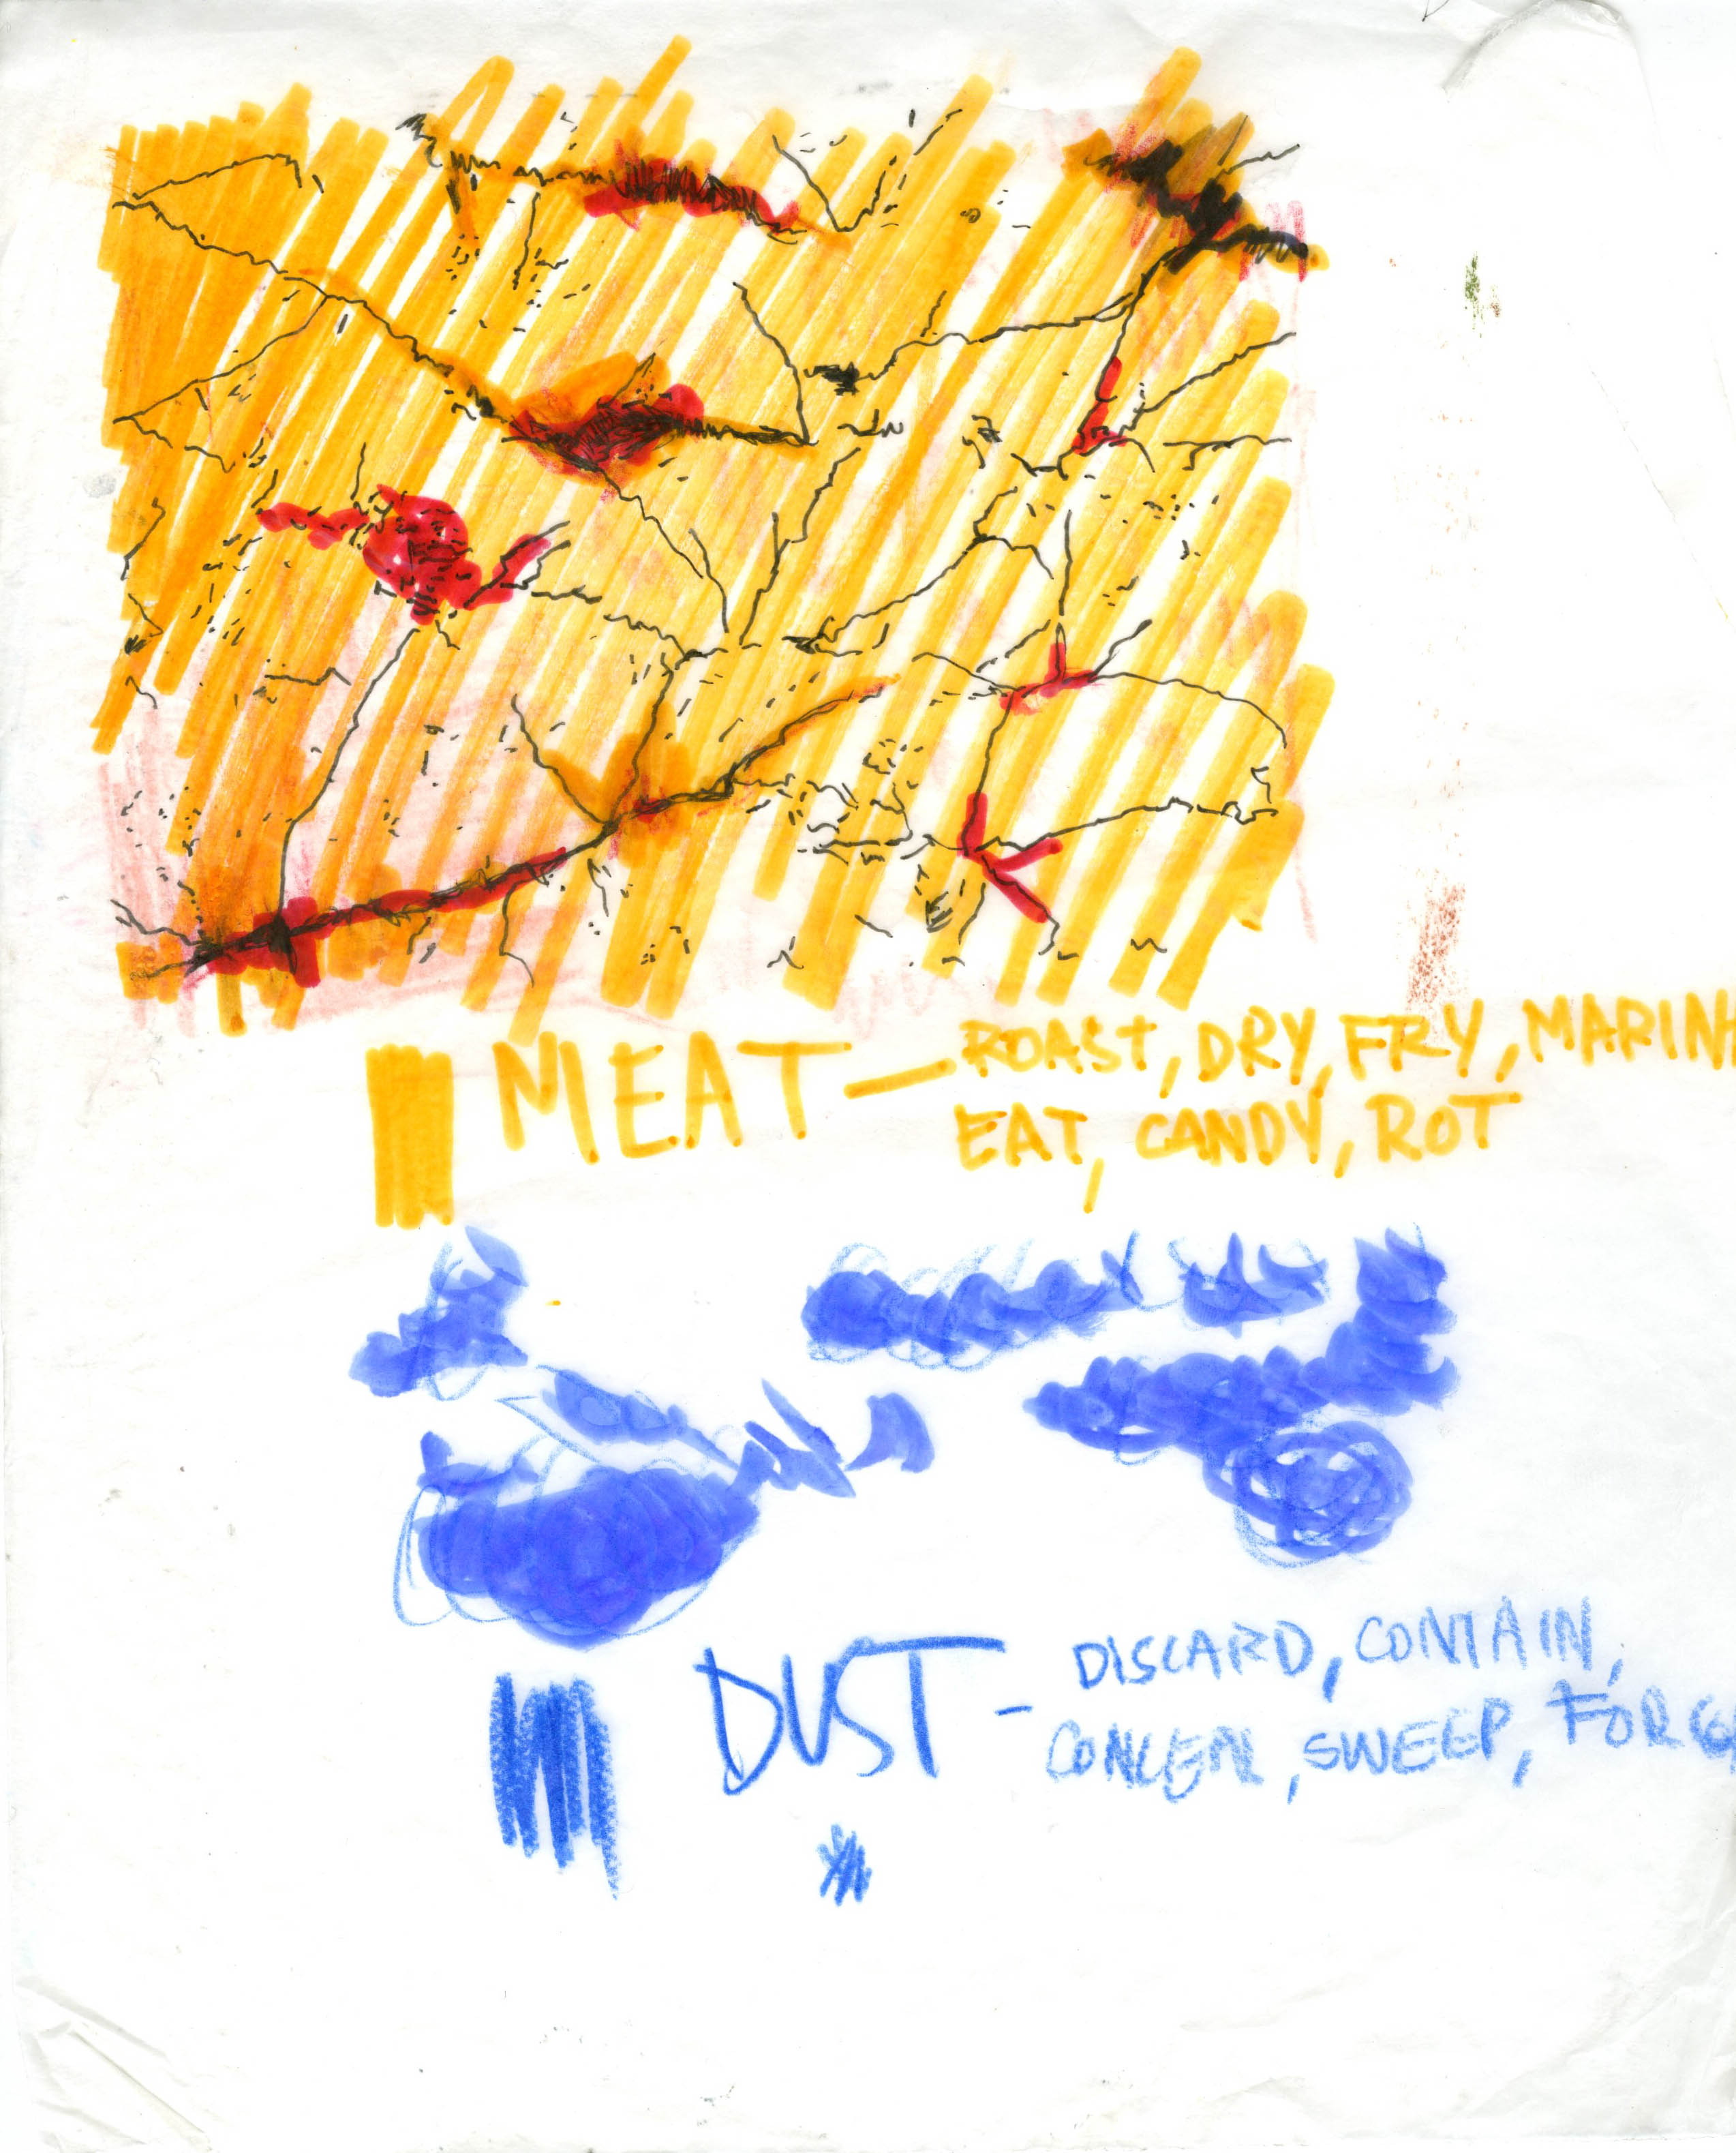 MEAT — ROAST, DRY, FRY, MARIN
EAT, CANDY, ROT
DUST - DISCARD, CONTAIN,
CONCEAL, SWEEP, FORGE